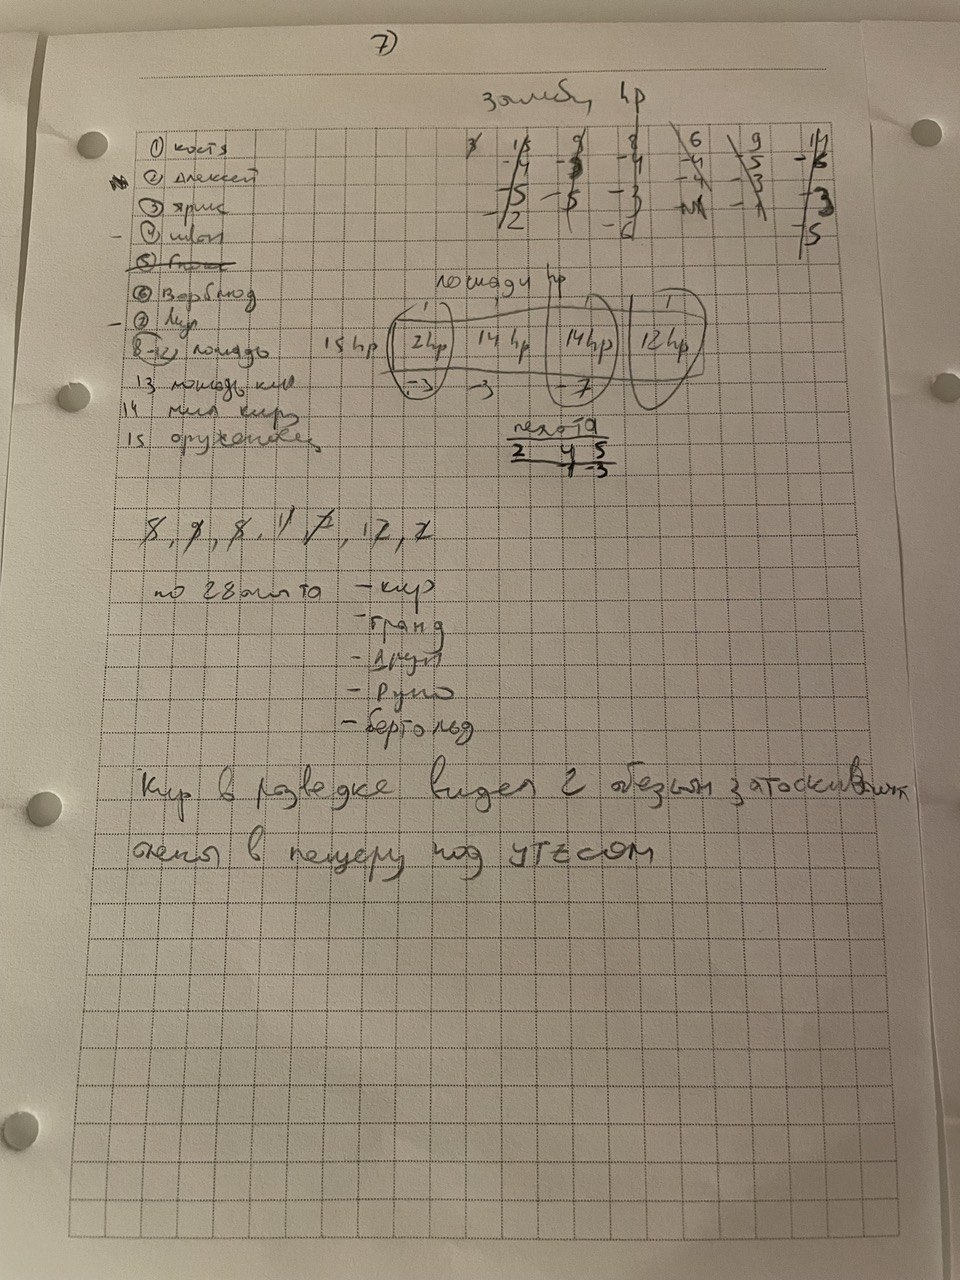 7)
зомби hp
15 9 8 6 9 11
-4 -3 -4 -4 -5 -6
-5 -5 -3 -4 -3 -3
-2 -6 -1 -5
① Костя
② Алексей
③ Ярик
④
⑥ Верблюд
⑦ Мул
8-12 лошадь
13 лошадь кир
14 мул кира
15 оруженосец
лошади hp
15 hp 2 hp 14 hp 14 hp 12 hp
-3 -3 -7
пехота
2 4 5
-3
8, 9, 8, 11, 7, 12, 2
по 28 опыта - кир
- Гранд
- Друп
- Руно
- бертольд
Кир в разведке видел 2 обезьян затаскивших
оленя в пещеру под утесом